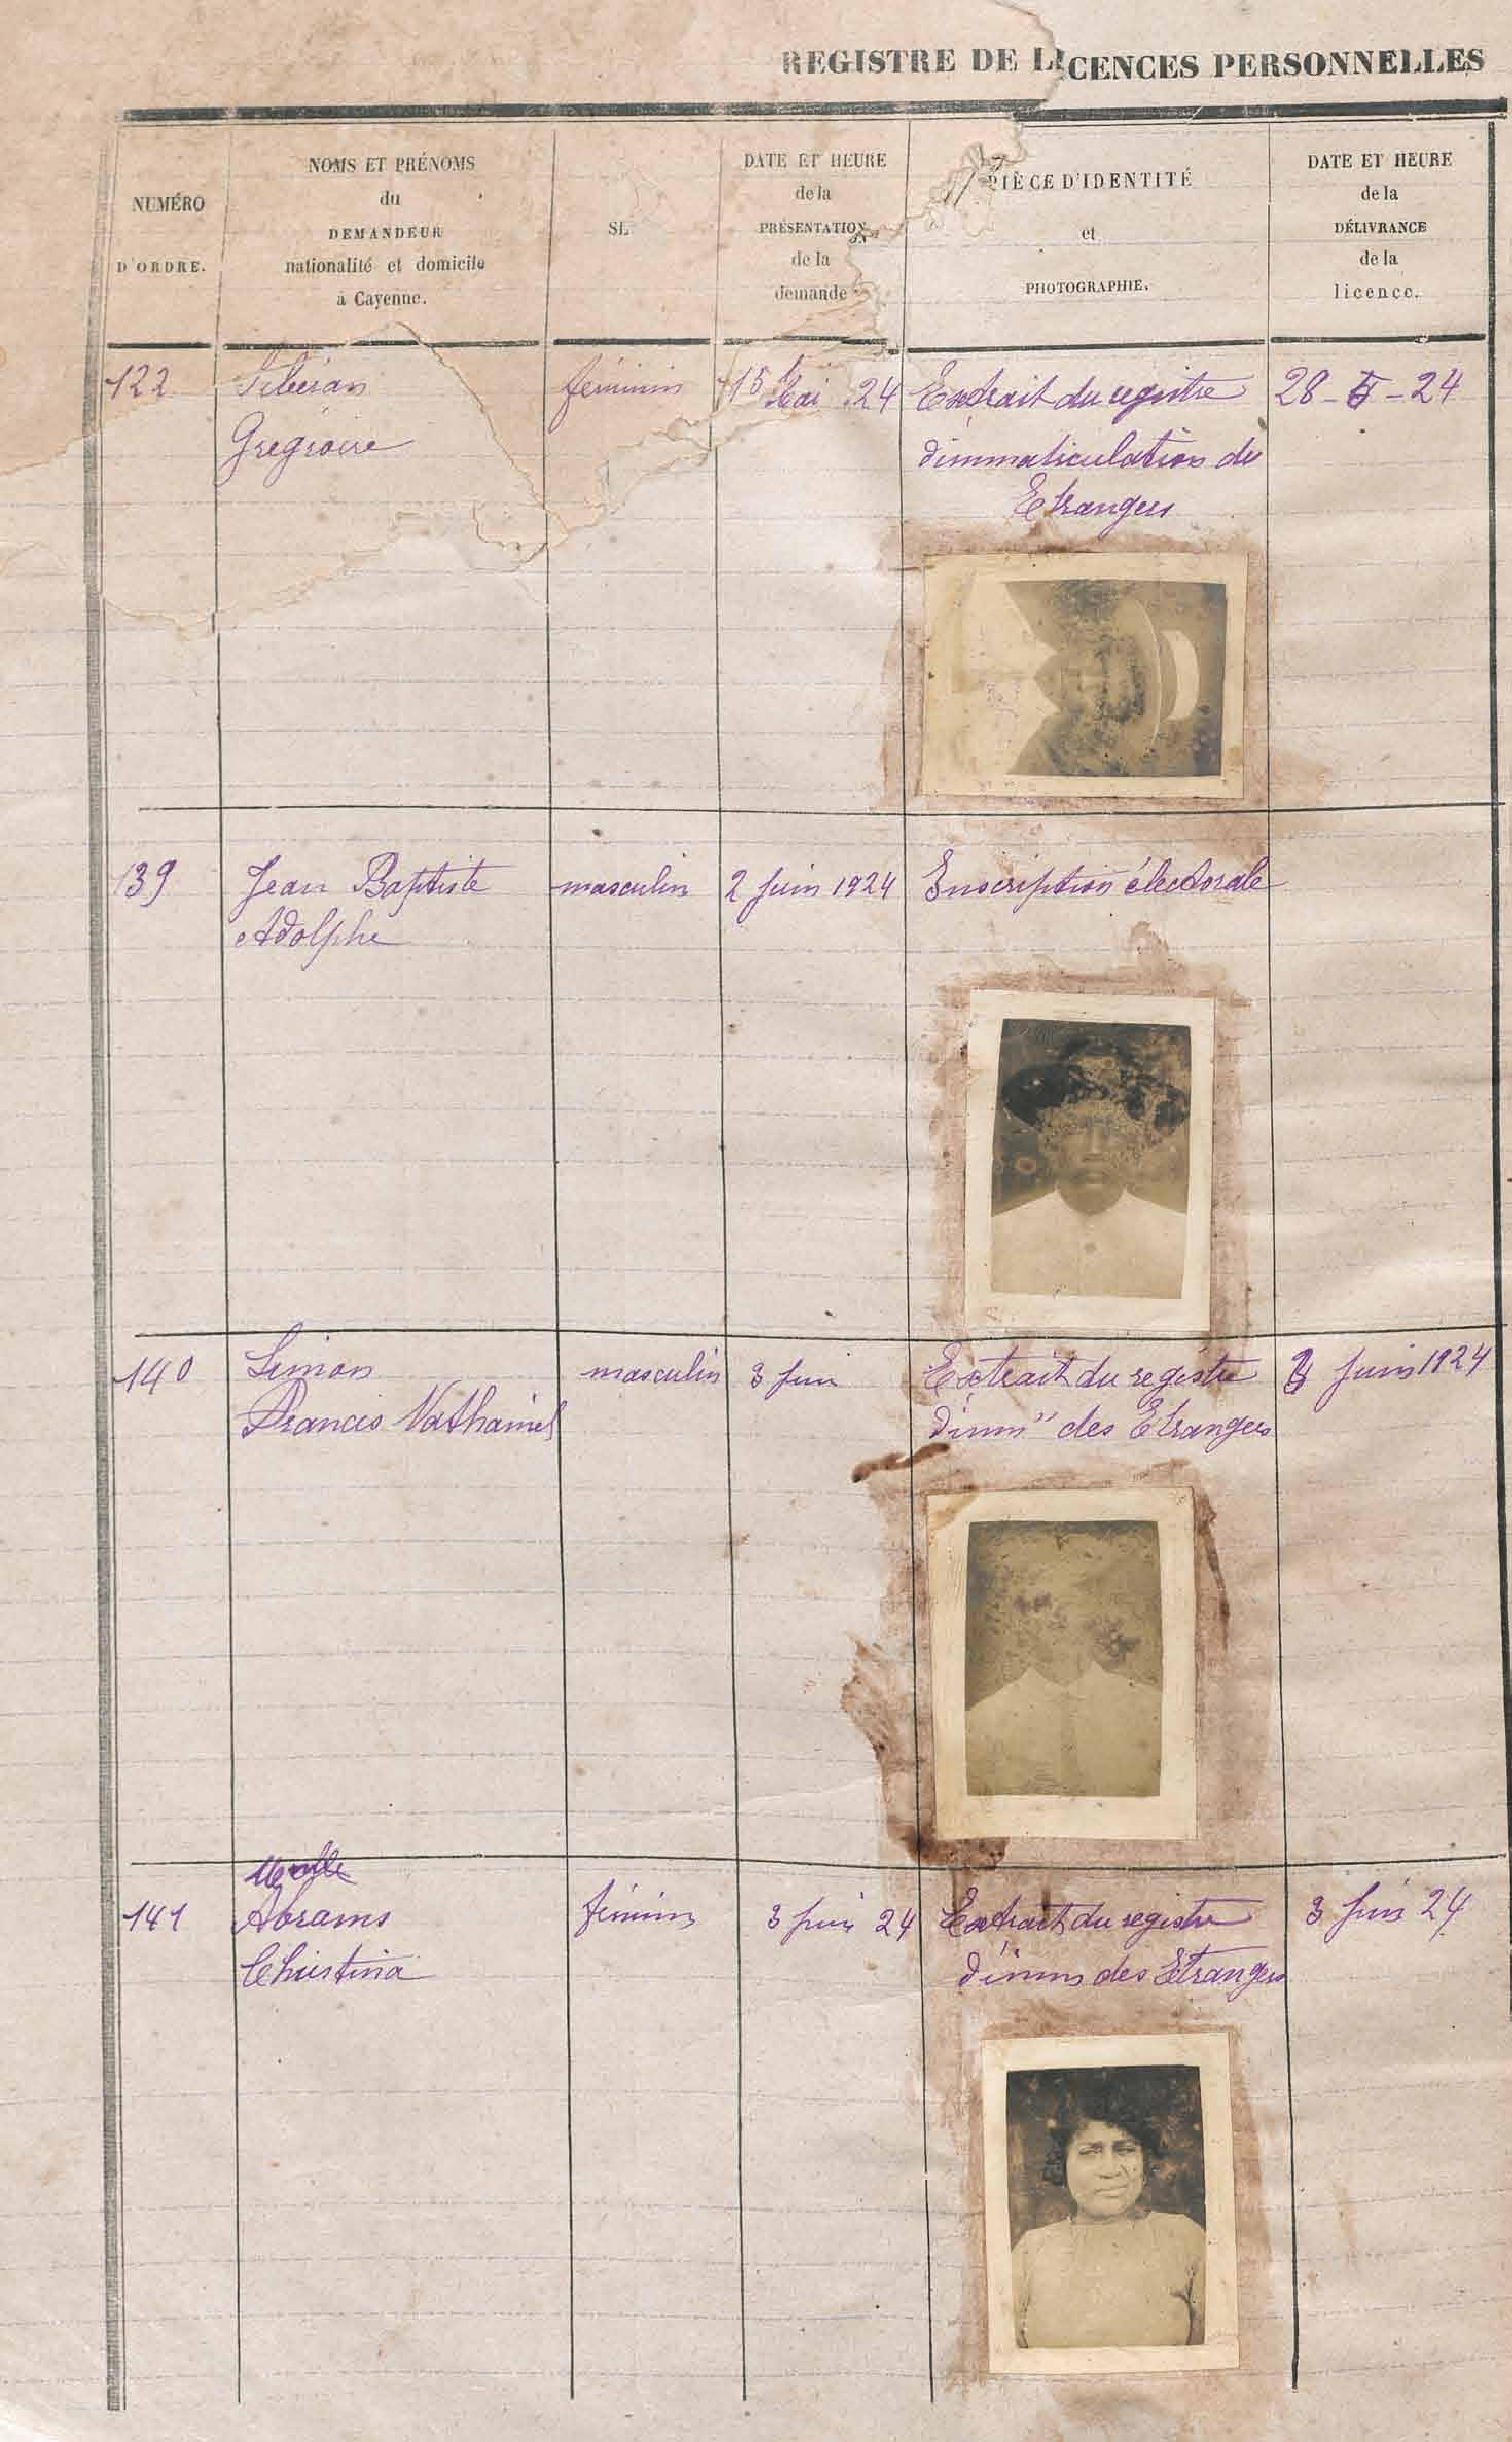 REGISTRE DE LICENCES PERSONNELLES
NUMÉRO
D'ORDRE.
NOMS ET PRÉNOMS
du
DEMANDEUR
nationalité et domicile
à Cayenne.
SE
DATE ET HEURE
de la
PRÉSENTATION
de la
demande
PIÈCE D'IDENTITÉ
et
PHOTOGRAPHIE.
DATE ET HEURE
de la
DÉLIVRANCE
de la
licence.
122
Grégroire
féminin
15 Mai 24
Extrait du registre
d'immatriculation des
Etrangers
28-5-24
139
Jean Baptiste
Adolphe
masculin
2 Juin 1924
Inscription électorale
140
Simon
Francis Nathaniel
masculin
3 Juin
Extrait du registre
d'imm" des Etrangers
3 Juin 1924
141
Melle
Abrams
Christina
féminin
3 Juin 24
Extrait du registre
d'imm des Etrangers
3 Juin 24